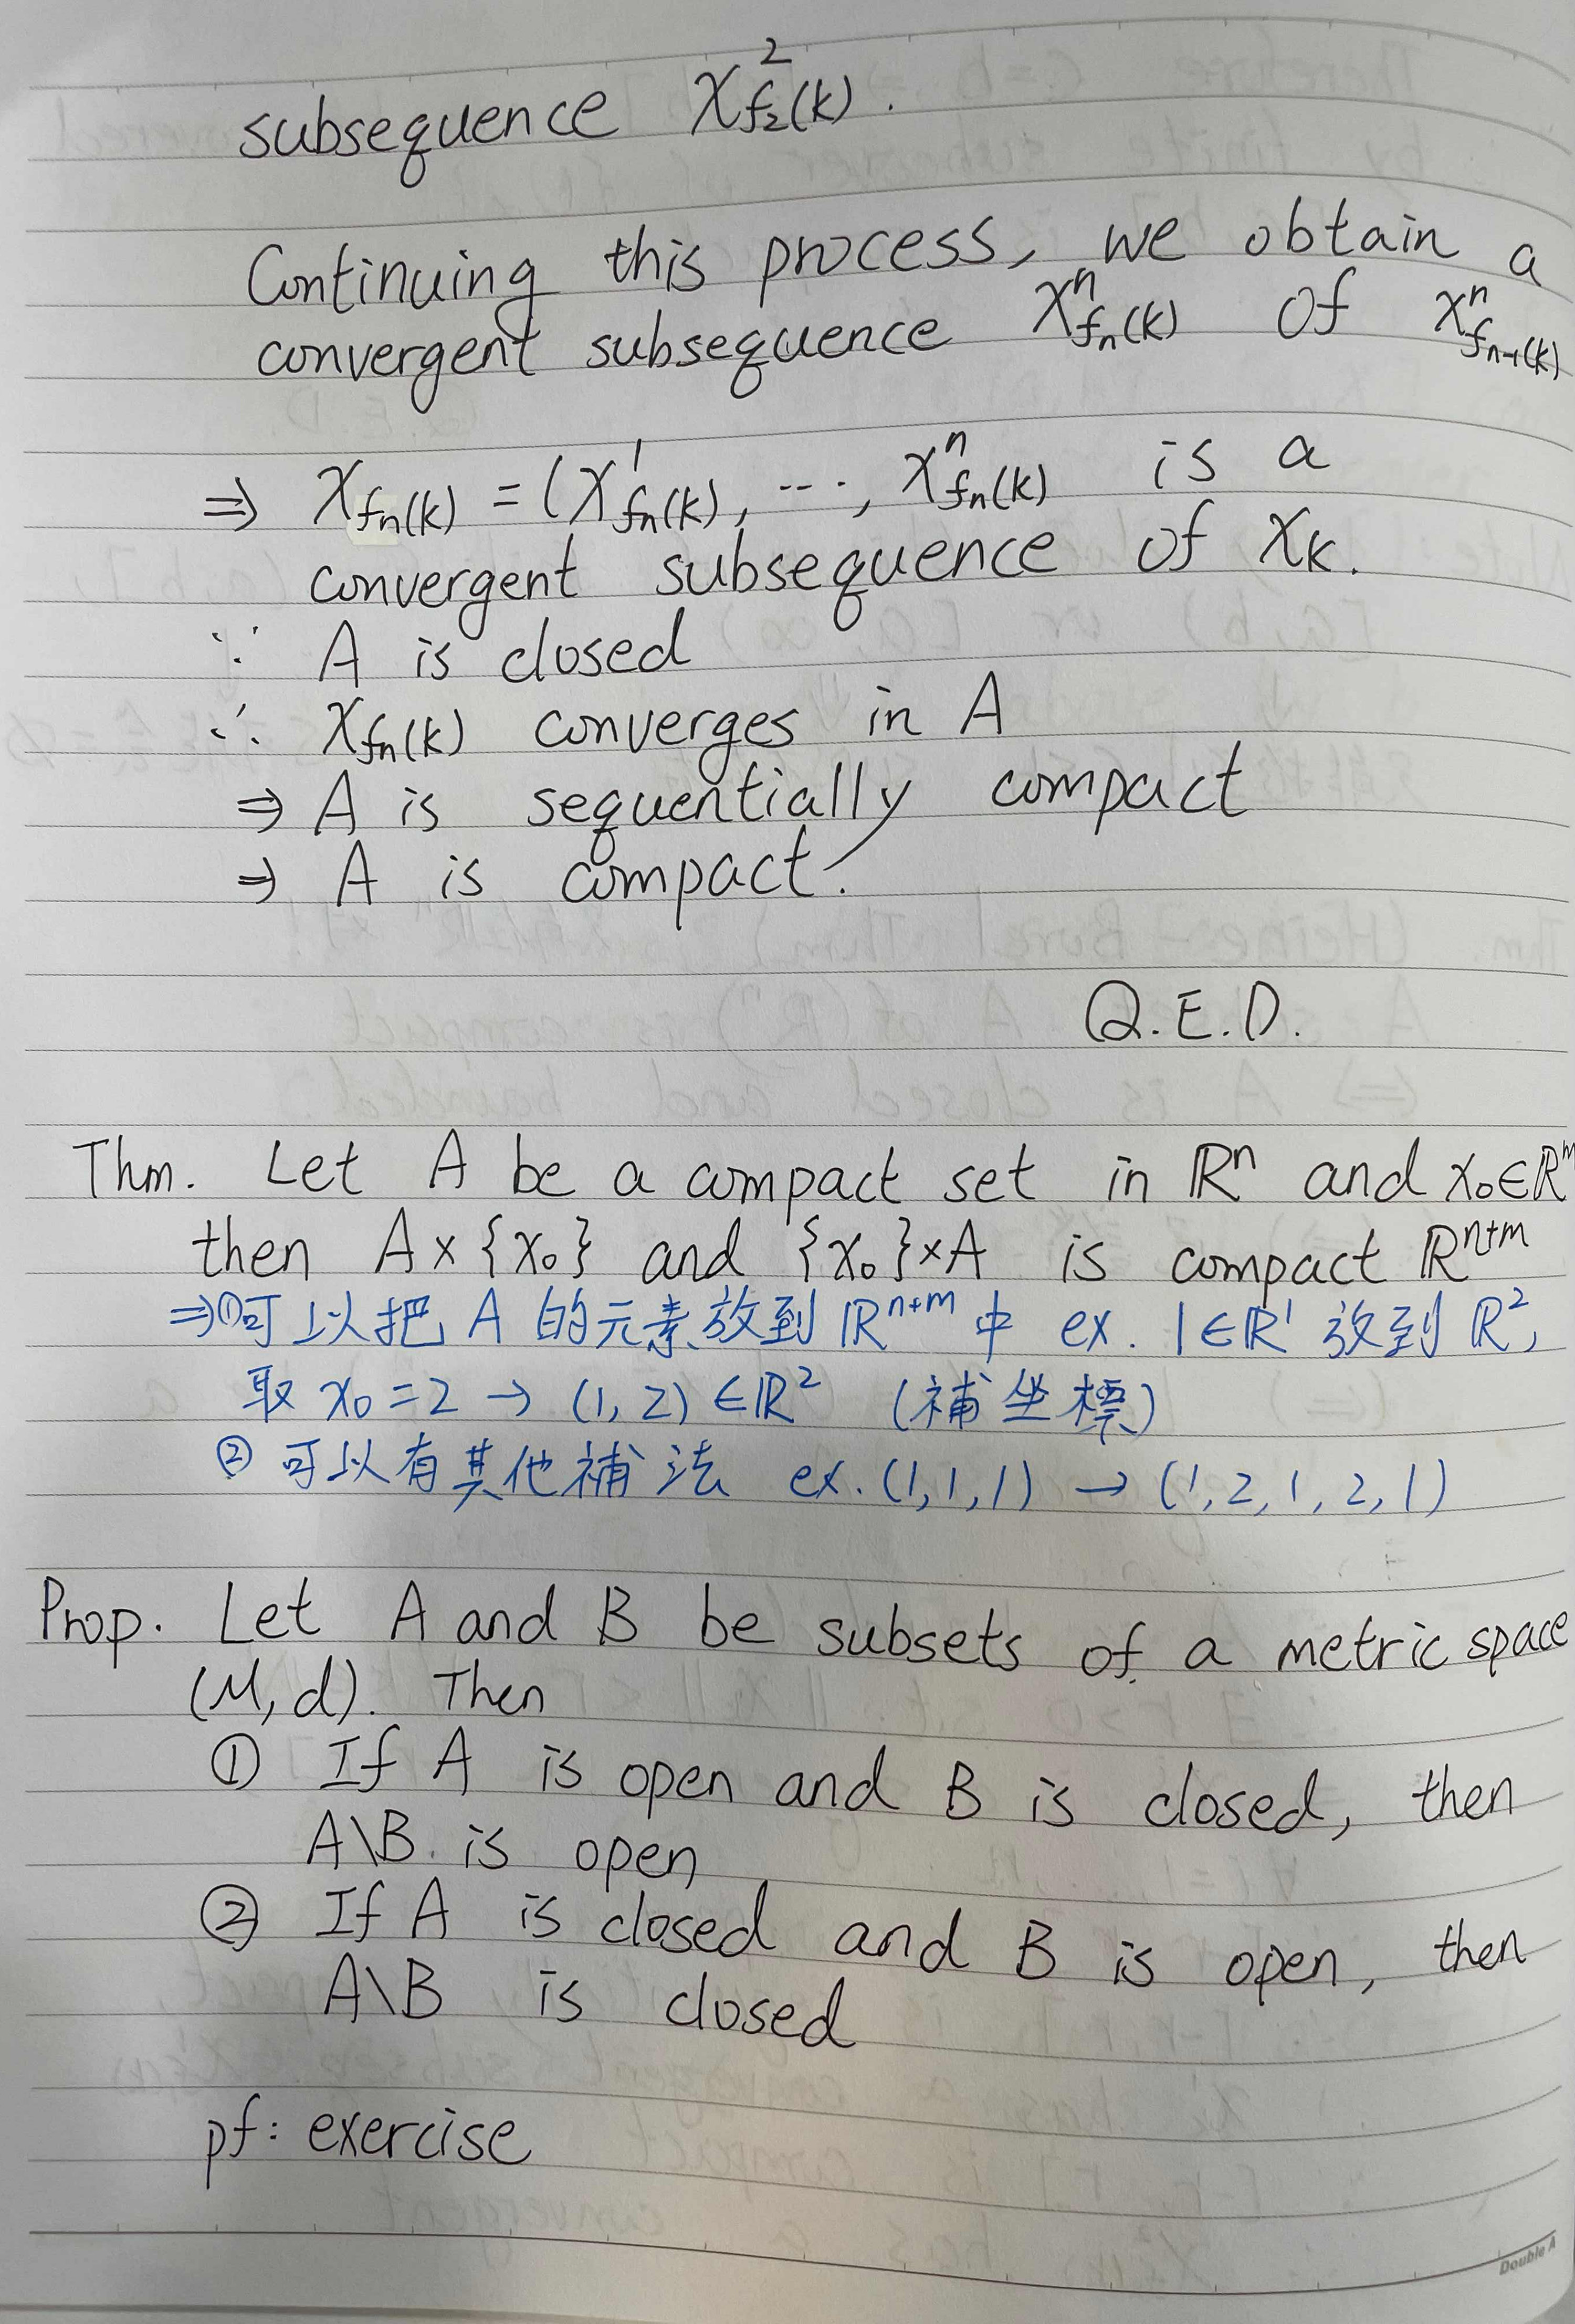 subsequence x²_{f₂(k)}.
Continuing this process, we obtain a
convergent subsequence xⁿ_{fₙ(k)} of xⁿ_{fₙ₋₁(k)}
⇒ x_{fₙ(k)} = (x¹_{fₙ(k)}, ..., xⁿ_{fₙ(k)} is a
convergent subsequence of x_k.
∵ A is closed
∴ x_{fₙ(k)} converges in A
⇒ A is sequentially compact
⇒ A is compact.
Q.E.D.
Thm. Let A be a compact set in ℝⁿ and x₀∈ℝᵐ
then A×{x₀} and {x₀}×A is compact ℝⁿ⁺ᵐ
⇒①可以把 A 的元素放到 ℝⁿ⁺ᵐ 中 ex. 1∈ℝ¹ 放到 ℝ²,
取 x₀=2 → (1,2)∈ℝ² (補坐標)
② 可以有其他補法 ex. (1,1,1) → (1,2,1,2,1)
Prop. Let A and B be subsets of a metric space
(M,d). Then
① If A is open and B is closed, then
A\B. is open
② If A is closed and B is open, then
A\B is closed
pf: exercise
Double A